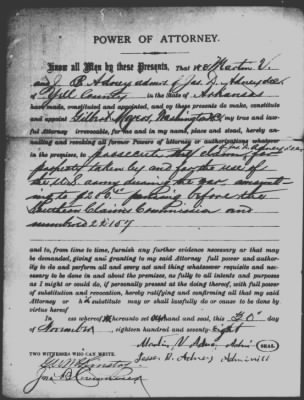 POWER OF ATTORNEY.
Know all Men by these Presents, That we Martin V.
and J. B. Adney admrs of Jas. J. Adney decd
of Yell County in the State of Arkansas
have made, constituted and appointed, and by these presents do make, constitute
and appoint Gilbert Moyers, Washington D.C. my true and law
ful Attorney irrevocable, for me and in my name, place and stead, hereby an-
nulling and revoking all former Powers of Attorney or authorizations whatever
in the premises, to prosecute claim for
property taken by and for the use of
the U.S. army during the war amount-
ing to $ pending before the
Southern Claims Commission and
numbered 22157
and to, from time to time, furnish any further evidence necessary or that may
be demanded, giving and granting to my said Attorney full power and author-
ity to do and perform all and every act and thing whatsoever requisite and nec-
essary to be done in and about the premises, as fully to all intents and purposes
as I might or could do, if personally present at the doing thereof, with full power
of substitution and revocation, hereby ratifying and confirming all that my said
Attorney or his substitute may or shall lawfully do or cause to be done by
virtue hereof
In witness whereof We hereunto set our hand and seal, this
November, eighteen hundred and seventy-eight
Martin V Adney Admr
SEAL
TWO WITNESSES WHO CAN WRITE.
Jasper B. Adney